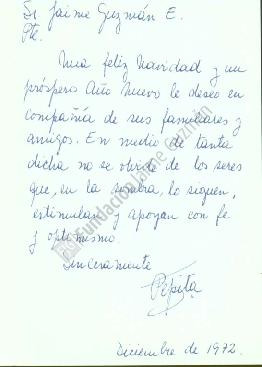 Sr. Jaime Guzmán E.
Pte.
Una feliz Navidad y un
próspero Año Nuevo le deseo en
compañía de sus familiares y
amigos. En medio de tanta
dicha no se olvide de los seres
que, en la sombra, lo siguen,
estimulan y apoyan con fe
y optimismo
Sinceramente
Pepita
Diciembre de 1972.
Fundación Jaime Guzmán